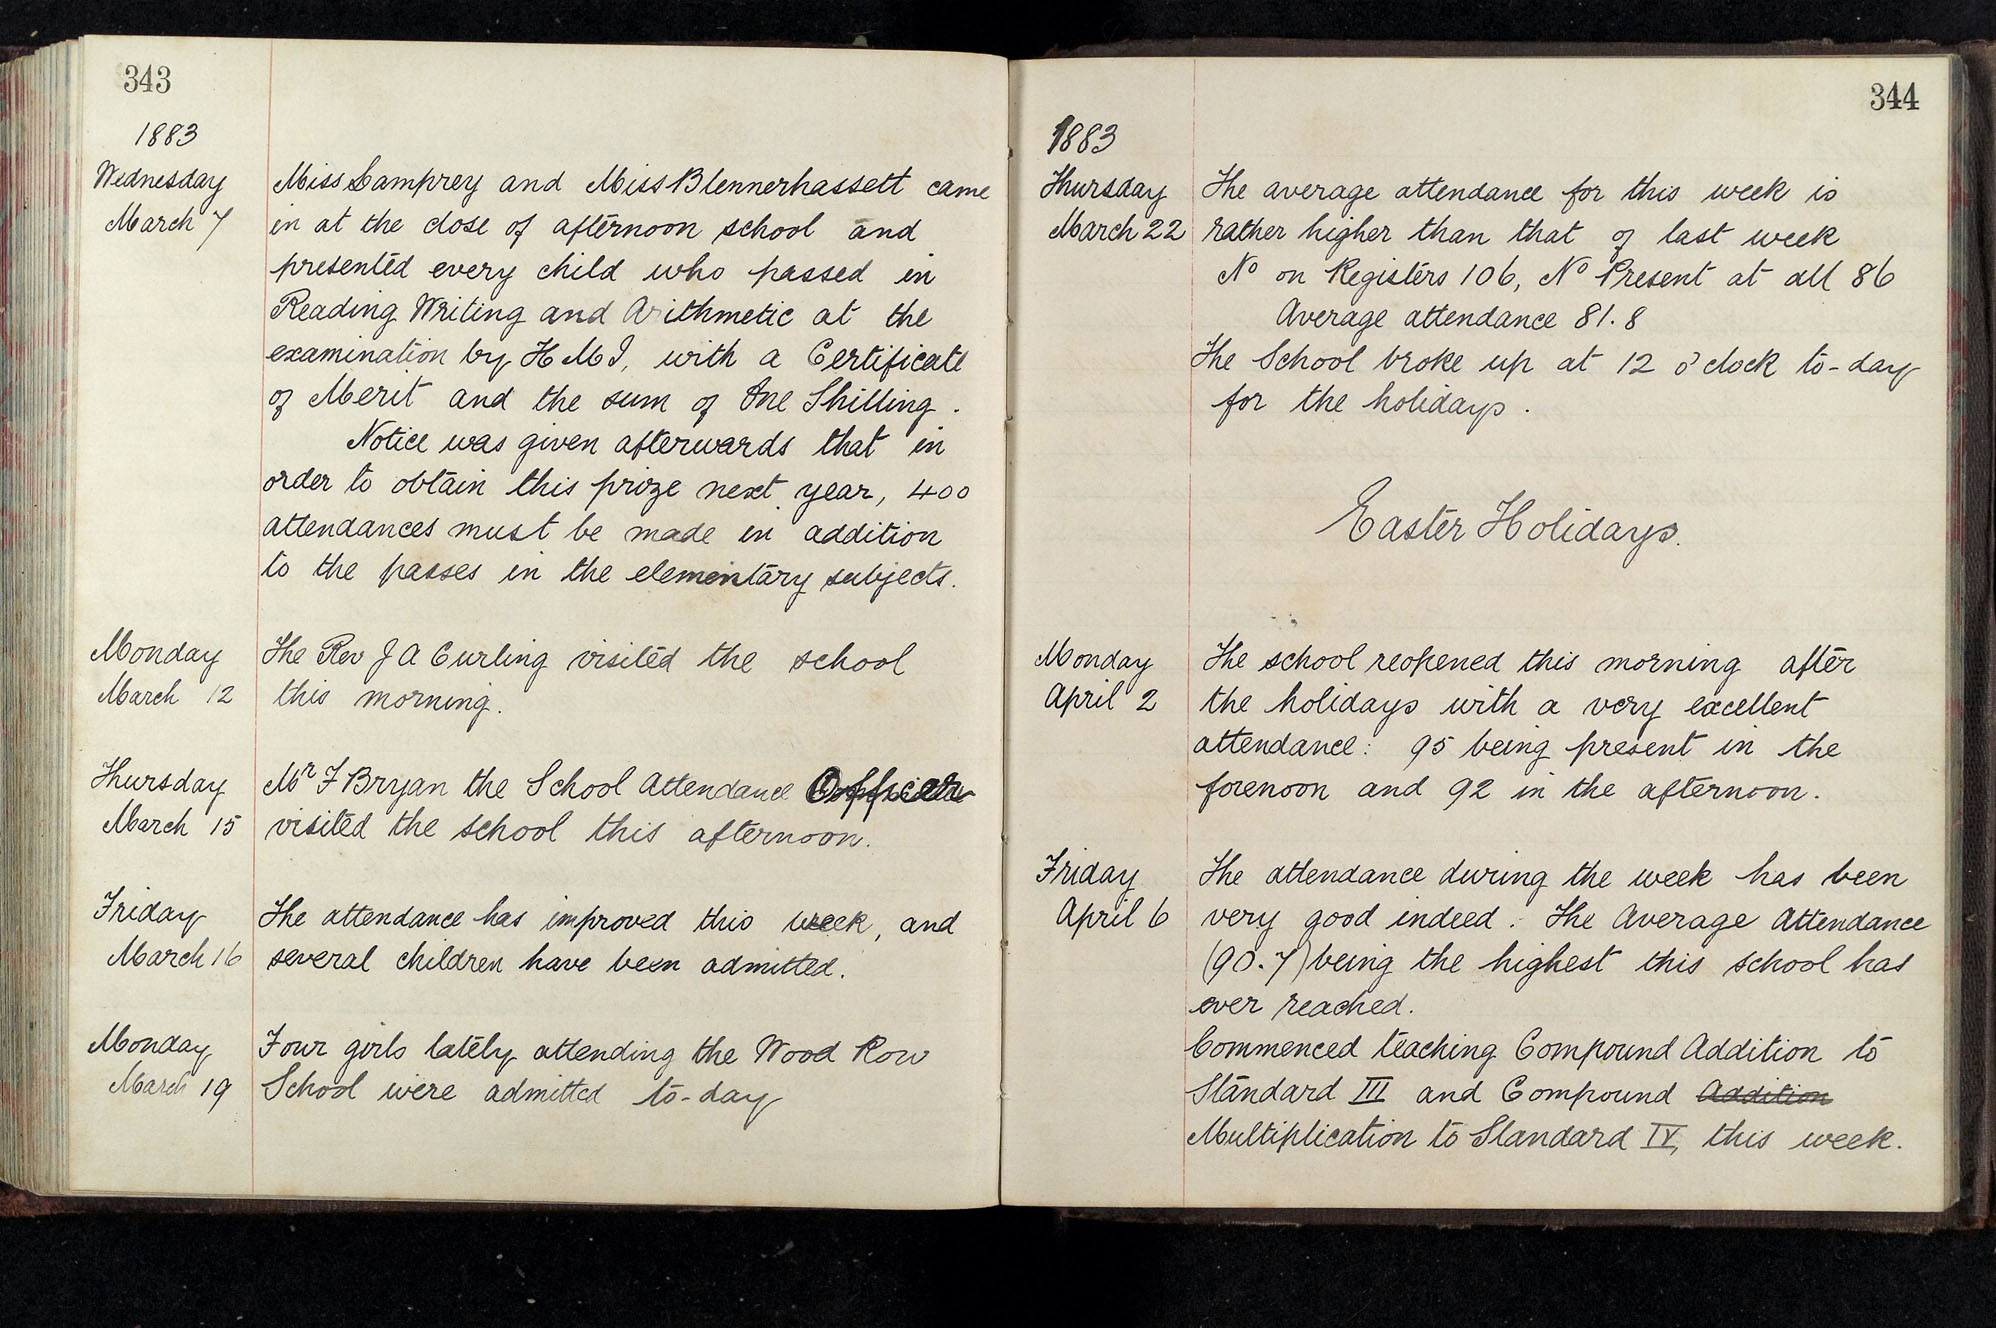 343
1883
Wednesday Miss Lamprey and Miss Blennerhassett came
March 7 in at the close of afternoon school and
presented every child who passed in
Reading Writing and Arithmetic at the
examination by H M I, with a Certificate
of Merit and the sum of One Shilling.
Notice was given afterwards that in
order to obtain this prize next year, 400
attendances must be made in addition
to the passes in the elementary subjects.
Monday The Rev J A Curling visited the school
March 12 this morning.
Thursday Mr F Bryan the School Attendance Officer
March 15 visited the school this afternoon.
Friday The attendance has improved this week, and
March 16 several children have been admitted.
Monday Four girls lately attending the Wood Row
March 19 School were admitted to-day
344
1883
Thursday The average attendance for this week is
March 22 rather higher than that of last week
No on Registers 106, No Present at all 86
Average attendance 81.8
The School broke up at 12 o'clock to-day
for the holidays.
Easter Holidays.
Monday The school reopened this morning after
April 2 the holidays with a very excellent
attendance: 95 being present in the
forenoon and 92 in the afternoon.
Friday The attendance during the week has been
April 6 very good indeed: The Average Attendance
(90.7) being the highest this school has
ever reached.
Commenced teaching Compound Addition to
Standard III and Compound Addition
Multiplication to Standard IV, this week.